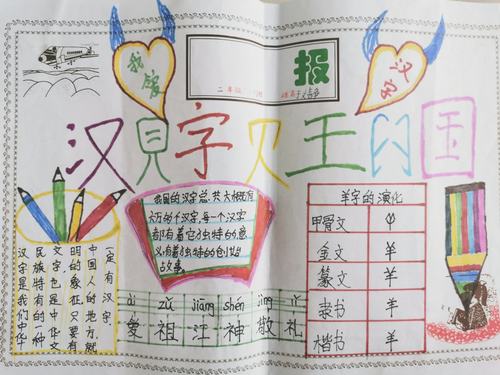 我爱
报
汉字
二年级
汉見字王国
汉字是我们中华
民族特有的一种
文字也是中华文
明的象征,只要有
中国人的地方,就
一定有汉字.
我国的汉字总共大概有
六万四千汉字,每一个汉字
都有着它独特的意
义,有着独特的创始
故事。
ài zǔ jiāng shén jìng lǐ
爱 祖 江 神 敬 礼
羊字的演化
甲骨文
金文 羊
篆文 羊
隶书 羊
楷书 羊